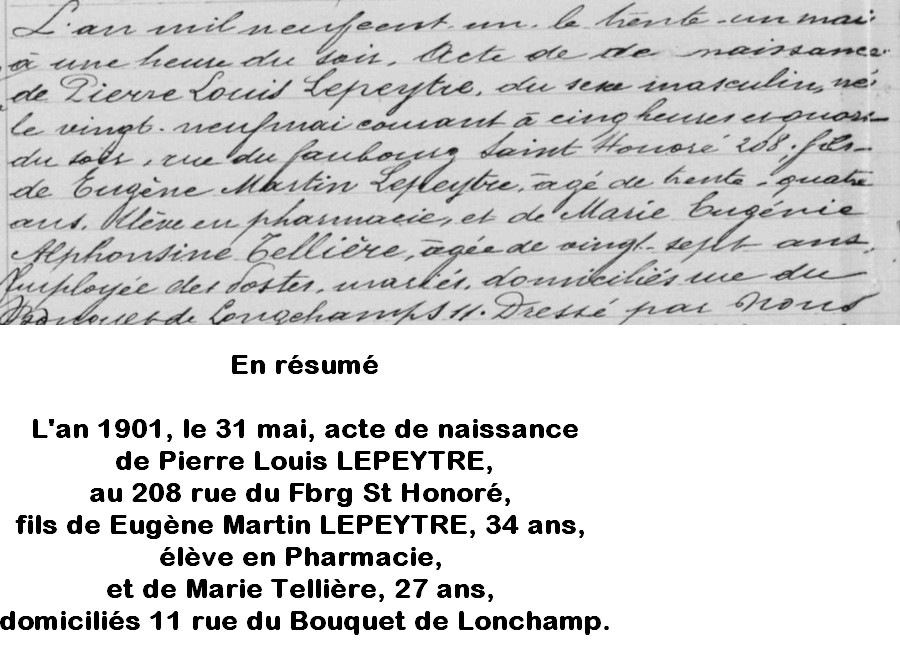 L'an mil neufcent un, le trente-un mai
à une heure du soir, Acte de de naissance
de Pierre Louis Lepeytre, du sexe masculin, né
le vingt-neuf mai courant à cinq heures et quart
du soir, rue du faubourg Saint Honoré 208; fils
de Eugène Martin Lepeytre, âgé de trente-quatre
ans, élève en pharmacie, et de Marie Eugénie
Alphonsine Tellière, âgée de vingt-sept ans,
Employée des Postes, mariés, domiciliés rue du
Bouquet de Longchamps 11. Dressé par Nous
En résumé
L'an 1901, le 31 mai, acte de naissance
de Pierre Louis LEPEYTRE,
au 208 rue du Fbrg St Honoré,
fils de Eugène Martin LEPEYTRE, 34 ans,
élève en Pharmacie,
et de Marie Tellière, 27 ans,
domiciliés 11 rue du Bouquet de Lonchamp.